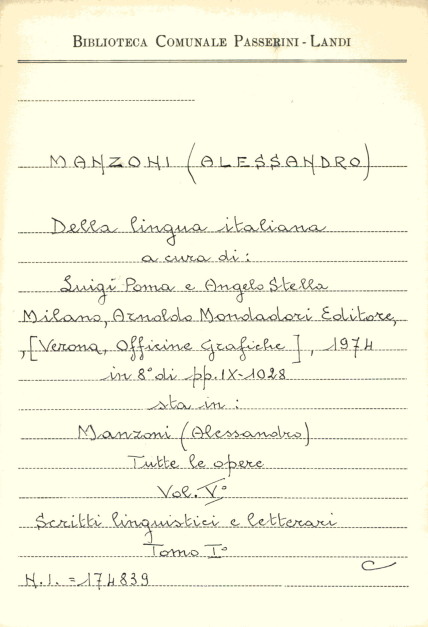 BIBLIOTECA COMUNALE PASSERINI - LANDI
MANZONI (ALESSANDRO)
Della lingua italiana
a cura di:
Luigi Poma e Angelo Stella
Milano, Arnoldo Mondadori Editore,
,[Verona, Officine Grafiche], 1974
in 8° di pp. IX-1028
sta in:
Manzoni (Alessandro)
Tutte le opere
Vol. V°
Scritti linguistici e letterari
Tomo I°
C
N.I. = 174839